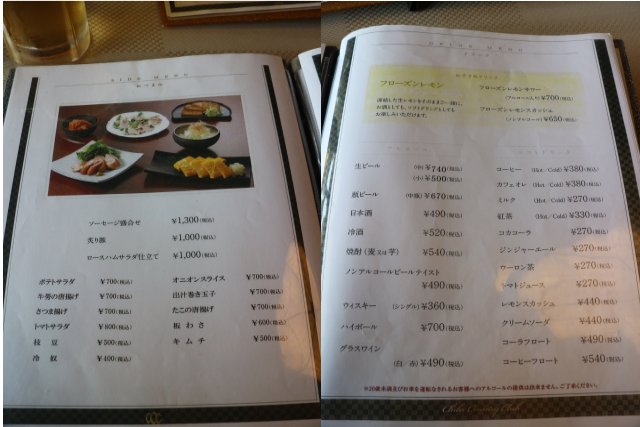 SIDE MENU
おつまみ
ソーセージ盛合せ ¥1,300(税込)
炙り雞 ¥1,000(税込)
ロースハムサラダ仕立て ¥1,000(税込)
ポテトサラダ ¥700(税込) オニオンスライス ¥700(税込)
牛蒡の唐揚げ ¥700(税込) 出汁巻き玉子 ¥700(税込)
さつま揚げ ¥700(税込) たこの唐揚げ ¥700(税込)
トマトサラダ ¥800(税込) 板わさ ¥600(税込)
枝豆 ¥500(税込) キムチ ¥500(税込)
冷奴 ¥400(税込)
DRINK MENU
ドリンク
フローズンレモン
凍結した生レモンをそのままご一緒に。
お酒としても、ソフトドリンクとしても
お楽しみいただけます。
フローズンレモンサワー
(アルコール入り) ¥700(税込)
フローズンレモンスカッシュ
(ノンアルコール) ¥650(税込)
生ビール (中) ¥740(税込)
(小) ¥500(税込)
瓶ビール (中瓶) ¥670(税込)
日本酒 ¥490(税込)
冷酒 ¥520(税込)
焼酎 (麦又は芋) ¥540(税込)
ノンアルコールビールテイスト
¥490(税込)
ウィスキー (シングル) ¥360(税込)
ハイボール ¥700(税込)
グラスワイン
(白/赤) ¥490(税込)
コーヒー (Hot/Cold) ¥380(税込)
カフェオレ (Hot/Cold) ¥380(税込)
ミルク (Hot/Cold) ¥270(税込)
紅茶 (Hot/Cold) ¥330(税込)
コカコーラ ¥270(税込)
ジンジャーエール ¥270(税込)
ウーロン茶 ¥270(税込)
トマトジュース ¥270(税込)
レモンスカッシュ ¥440(税込)
クリームソーダ ¥440(税込)
コーラフロート ¥490(税込)
コーヒーフロート ¥540(税込)
※20歳未満及びお車を運転なされるお客様へのアルコールの提供は出来ません。ご了承ください。
Chiba Country Club